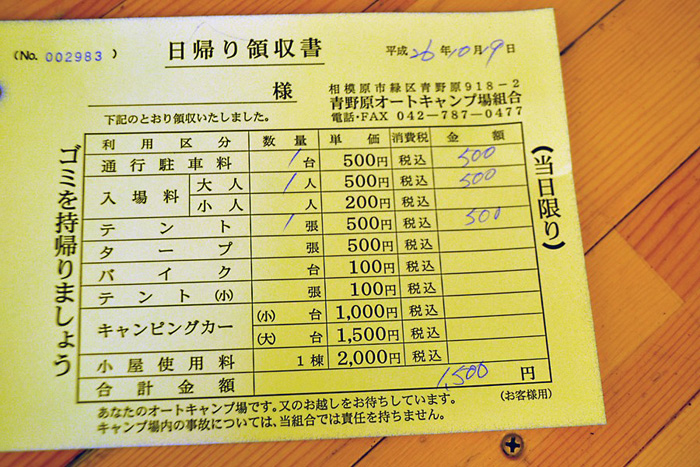 (No. 002983)
日帰り領収書
平成 26年10月19日
様
相模原市緑区青野原918-2
青野原オートキャンプ場組合
電話・FAX 042-787-0477
下記のとおり領収いたしました。
利用区分 数量 単価 消費税 金額
通行駐車料 1台 500円 税込 500
入場料 大人 1人 500円 税込 500
小人 人 200円 税込
テント 1張 500円 税込 500
タープ 張 500円 税込
バイク 台 100円 税込
テント(小) 張 100円 税込
キャンピングカー (小) 台 1,000円 税込
(大) 台 1,500円 税込
小屋使用料 1棟 2,000円 税込
合計金額 1,500 円
あなたのオートキャンプ場です。又のお越しをお待ちしています。
キャンプ場内の事故については、当組合では責任を持ちません。
(お客様用)
ゴミを持帰りましょう
(当日限り)